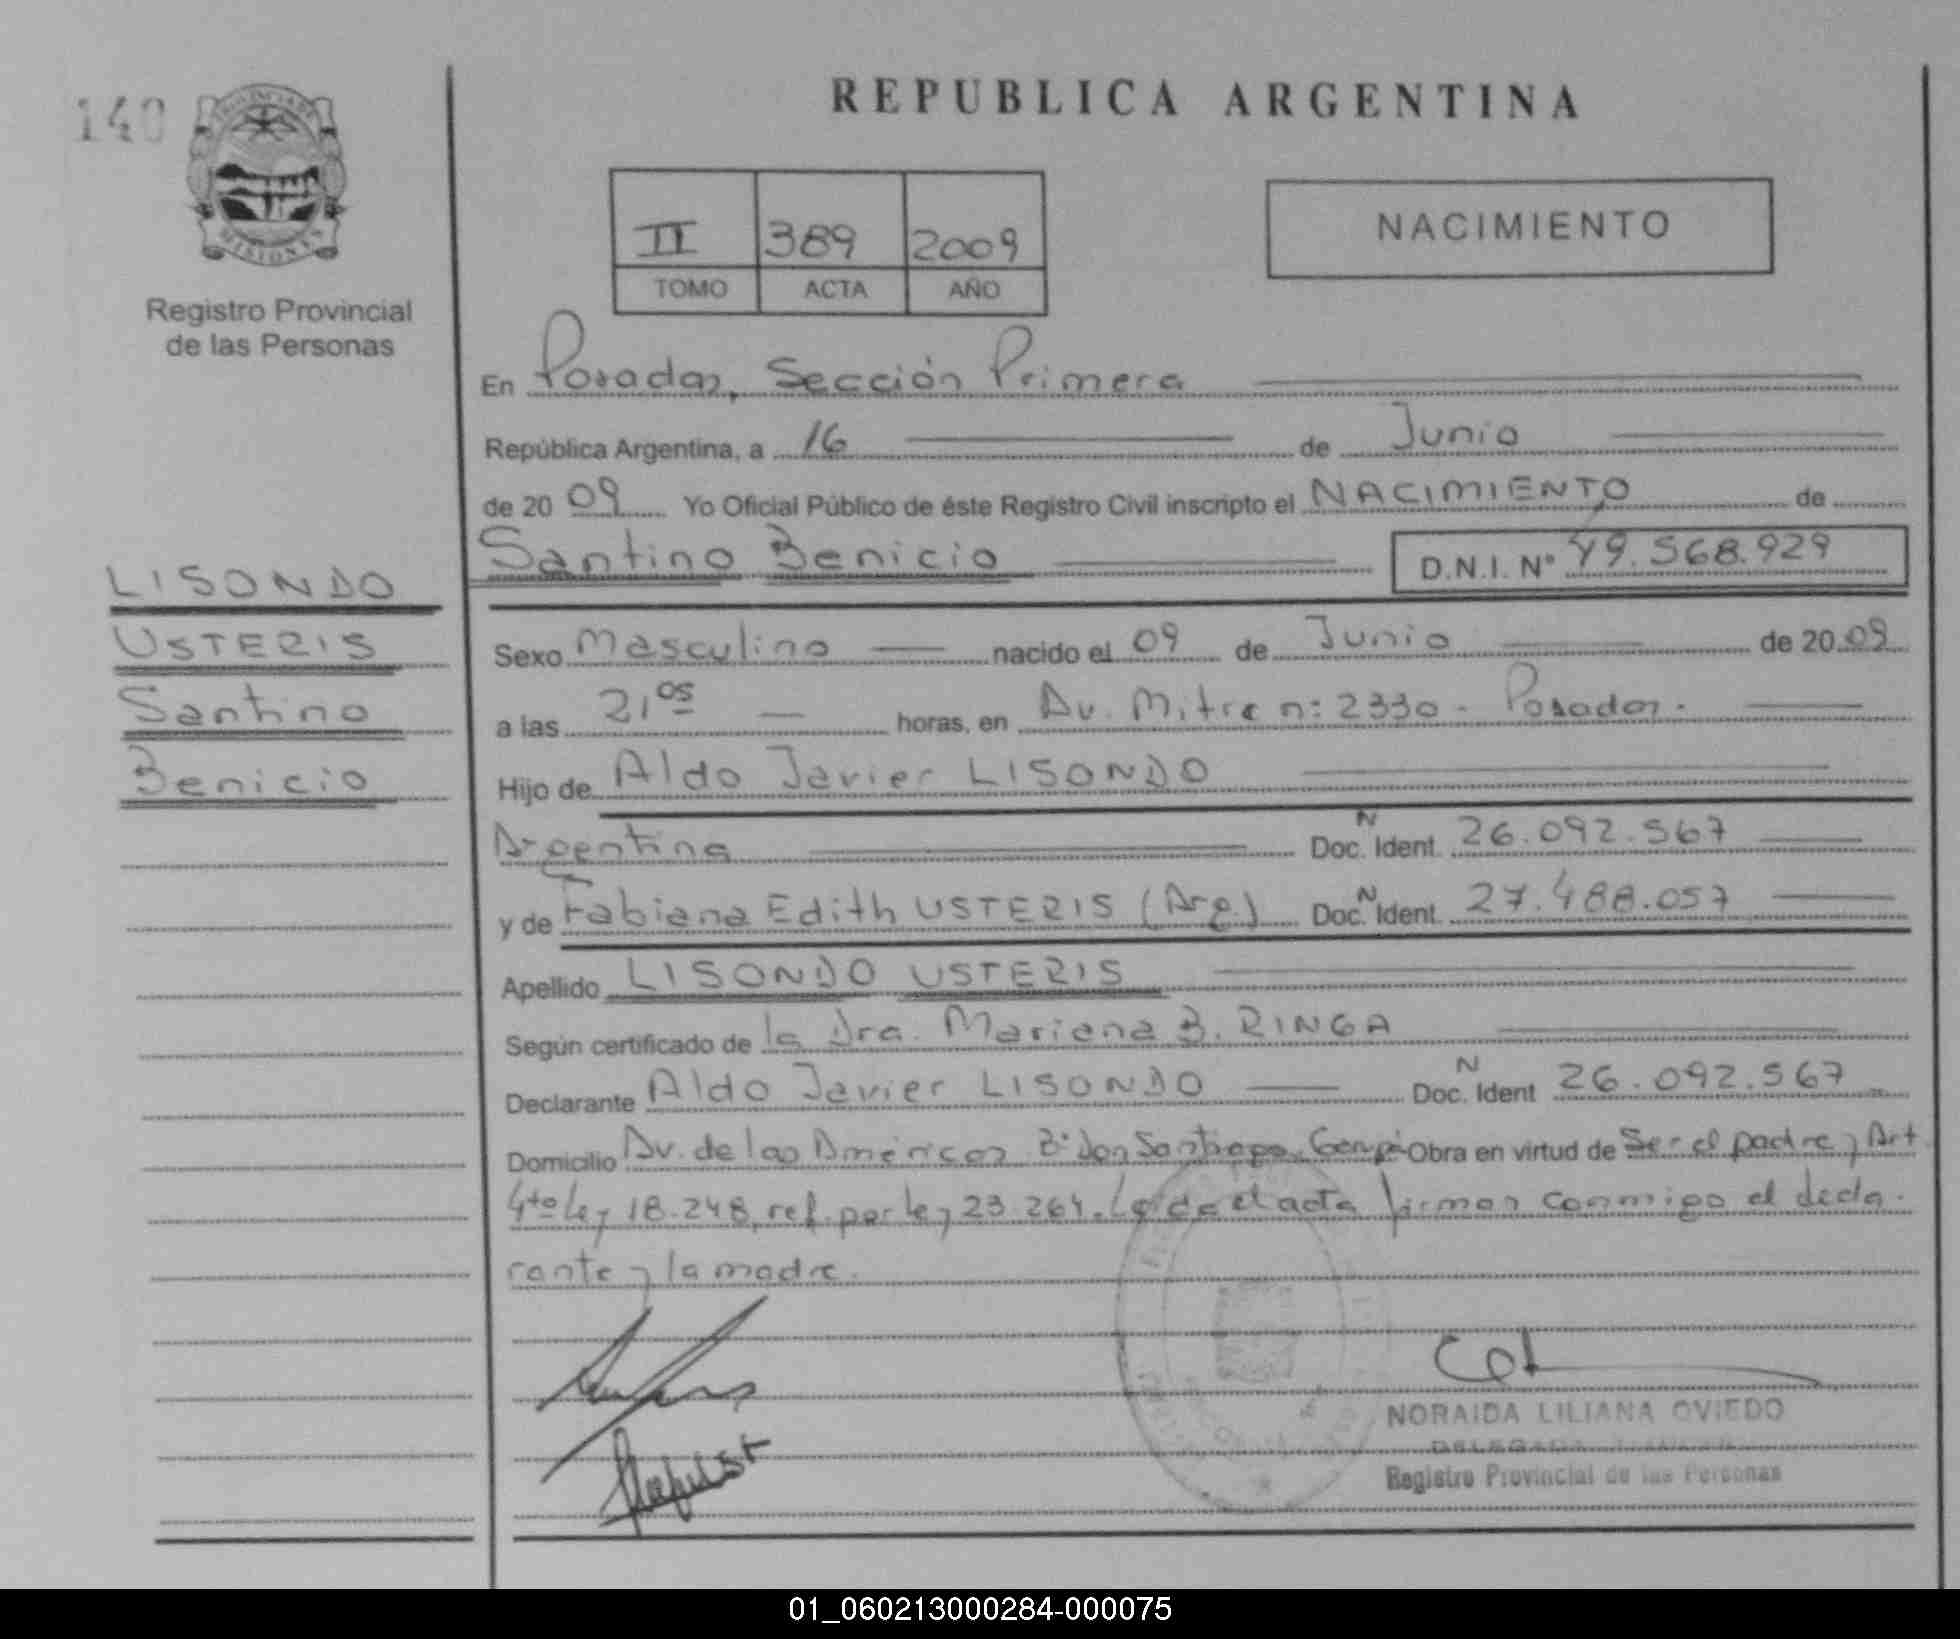 140
PROVINCIA DE
MISIONES
Registro Provincial
de las Personas
LISONDO
USTERIS
Santino
Benicio
REPUBLICA ARGENTINA
II 389 2009
TOMO ACTA AÑO
NACIMIENTO
En Posadas, Sección Primera
República Argentina, a 16 de Junio
de 20 09 Yo Oficial Público de éste Registro Civil inscripto el NACIMIENTO de
Santino Benicio D.N.I. N° 49.568.929
Sexo Masculino nacido el 09 de Junio de 20 09
a las 21 05 horas, en Av. Mitre n: 2330 - Posadas.
Hijo de Aldo Javier LISONDO
Argentina N Doc. Ident. 26.092.567
y de Fabiana Edith USTERIS (Arg.) N Doc. Ident. 27.488.057
Apellido LISONDO USTERIS
Según certificado de la Dra. Mariana B. RINGA
Declarante Aldo Javier LISONDO N Doc. Ident 26.092.567
Domicilio Av. de las Américas B° Don Santiago, Garupá Obra en virtud de Ser el padre y Art
4to Ley 18.248, ref. por ley 23.264. Leída el acta firman conmigo el decla-
rante y la madre.
NORAIDA LILIANA OVIEDO
DELEGADA
Registro Provincial de las Personas
01_060213000284-000075